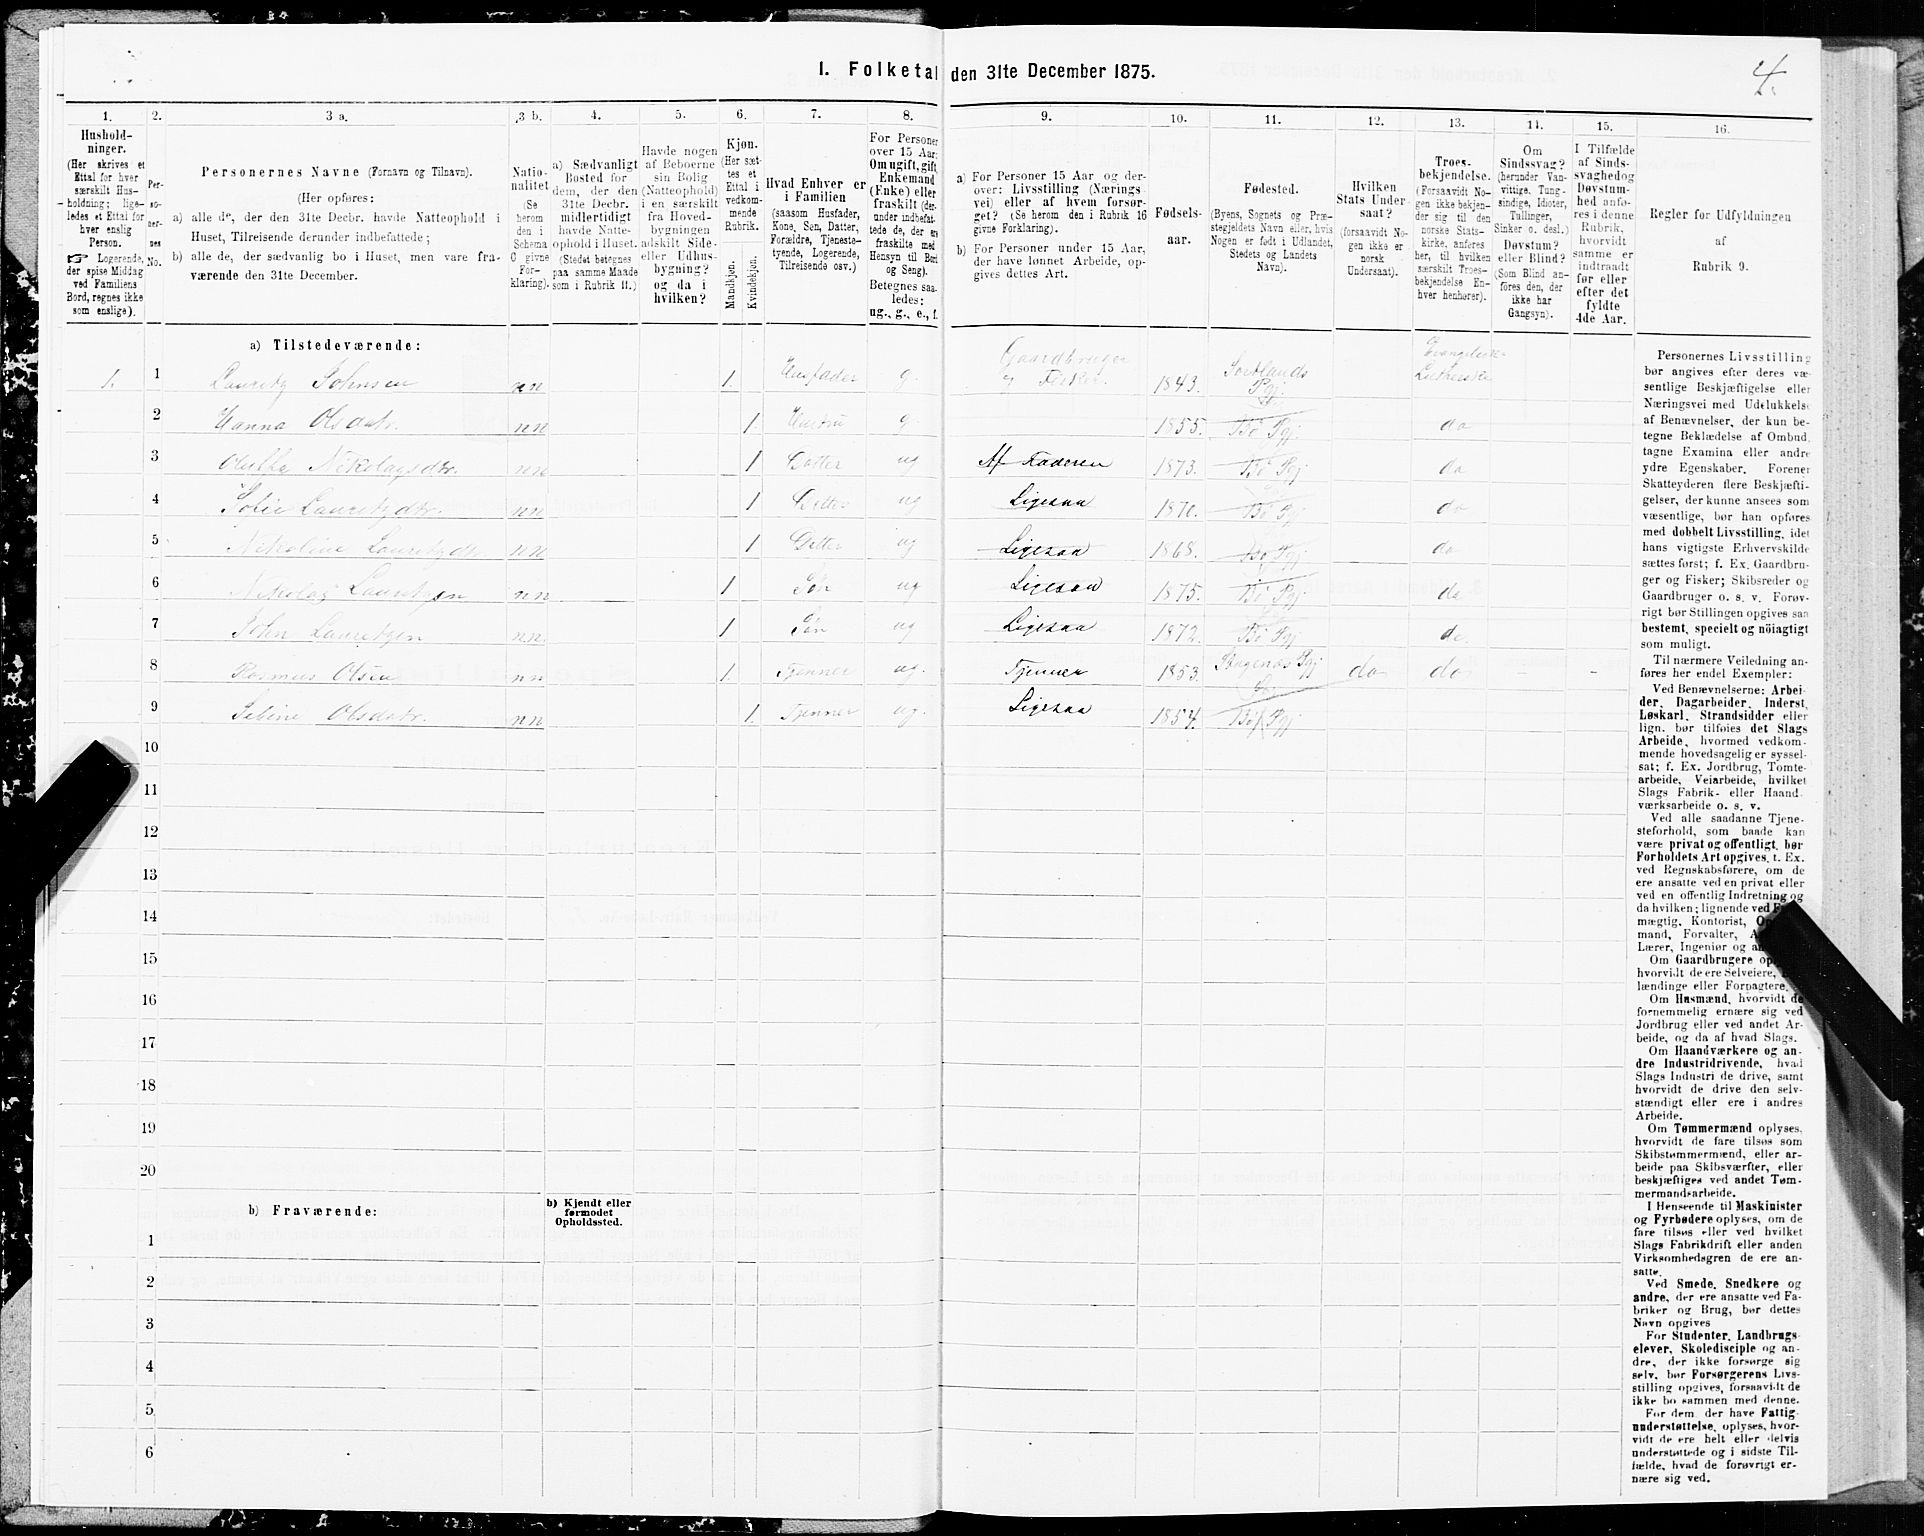 I. Folketal den 31te December 1875.
4.
1. 2. 3 a. 3 b. 4. 5. 6. 7. 8. 9. 10. 11. 12. 13. 14. 15. 16.
Hushold-
ninger.
(Her skrives et
Ettal for hver
særskilt Hus-
holdning; lige-
ledes et Ettal for
hver enslig
Person.
☞ Logerende,
der spise Middag
ved Familiens
Bord, regnes ikke
som enslige).
Per-
so-
ner-
nes
No.
Personernes Navne (Fornavn og Tilnavn).
(Her opføres:
a) alle de, der den 31te Decbr. havde Natteophold i
Huset, Tilreisende derunder indbefattede;
b) alle de, der sædvanlig bo i Huset, men vare fra-
værende den 31te December.
Natio-
nalitet
(Se
herom
den i
Schema
C givne
For-
klaring).
a) Sædvanligt
Bosted for
dem, der den
31te Decbr.
midlertidigt
havde Natte-
ophold i Huset.
(Stedet betegnes
paa samme Maade
som i Rubrik 11.)
Havde nogen
af Beboerne
sin Bolig
(Natteophold)
i en særskilt
fra Hoved-
bygningen
adskilt Side-
eller Udhus-
bygning?
og da i
hvilken?
Kjøn.
(Her sæt-
tes et
Ettal i
vedkom-
mende
Rubrik.
Mandkjøn.
Kvindekjøn.
Hvad Enhver er
i Familien
(saasom Husfader,
Kone, Søn, Datter,
Forældre, Tjeneste-
tyende, Logerende,
Tilreisende osv.)
For Personer
over 15 Aar:
Om ugift, gift,
Enkemand
(Enke) eller
fraskilt (der-
under indbefat-
tede de, der ere
fraskilte med
Hensyn til Bord
og Seng).
Betegnes saa-
ledes:
ug., g., e., f.
a) For Personer 15 Aar og der-
over: Livsstilling (Nærings-
vei) eller af hvem forsør-
get? (Se herom den i Rubrik 16
givne Forklaring).
b) For Personer under 15 Aar,
der have lønnet Arbeide, op-
gives dettes Art.
Fødsels-
aar.
Fødested.
(Byens, Sognets og Præ-
stegjeldets Navn eller, hvis
Nogen er født i Udlandet,
Stedets og Landets
Navn).
Hvilken
Stats Under-
saat?
(forsaavidt No-
gen ikke er
norsk
Undersaat).
Troes-
bekjendelse.
(Forsaavidt No-
gen ikke bekjen-
der sig til den
norske Stats-
kirke, anføres
her, til hvilken
særskilt Troes-
bekjendelse En-
hver henhører).
Om
Sindssvag?
(herunder Van-
vittige, Tung-
sindige, Idioter,
Tullinger,
Sinker o. desl.)
Døvstum?
eller Blind?
(Som Blind an-
føres den, der
ikke har
Gangsyn).
I Tilfælde
af Sinds-
svaghed og
Døvstum-
hed anfø-
res i denne
Rubrik,
hvorvidt
samme er
indtraadt
før eller
efter det
fyldte
4de Aar.
Regler for Udfyldningen
af
Rubrik 9.
a) Tilstedeværende:
1. 1 Lauritz Johnsen nn 1. Husfader g. Gaardbruger & Fisker 1843. Sortlands Pgj. Evangeliske Lutherske
2 Hanna Olsdatr. nn 1. Hustru g. 1855. Bö Pgj. do
3 Nikolaysdtr. nn 1 Datter ug Af Faderen 1873. Bö Pgj do
4 Sofie Lauritzdtr. nn 1 Datter ug Ligesaa 1870. Bö Pgj do
5 Nikoline Lauritzdtr nn 1 Datter ug Ligesaa 1868. Bö Pgj do
6 Nikolay Lauritzen nn 1 Søn ug Ligesaa 1875. Bö Pgj do
7 John Lauritzen nn. 1 Søn ug Ligesaa 1872. Bö Pgj do.
8 Rasmus Olsen nn 1. Tjenner ug. Tjenner 1853. Pgj do do - -
9 Sebine Olsdatr. nn 1. Tjenner ug. Ligesaa 1854. Bö Pgj
10
11
12
13
14
15
16
17
18
19
20
b) Fraværende:
b) Kjendt eller
formodet
Opholdssted.
1
2
3
4
5
6
Personernes Livsstilling
bør angives efter deres væ-
sentlige Beskjæftigelse eller
Næringsvei med Udelukkelse
af Benævnelser, der kun be-
tegne Beklædelse af Ombud,
tagne Examina eller andre
ydre Egenskaber. Forener
Skatteyderen flere Beskjæfti-
gelser, der kunne ansees som
væsentlige, bør han opføres
med dobbelt Livsstilling, idet
hans vigtigste Erhvervskilde
sættes først; f. Ex. Gaardbru-
ger og Fisker; Skibsreder og
Gaardbruger o. s. v. Forøv-
rigt bør Stillingen opgives saa
bestemt, specielt og nöiagtigt
som muligt.
Til nærmere Veiledning an-
føres her endel Exempler:
Ved Benævnelserne: Arbei-
der, Dagarbeider, Inderst,
Løskarl, Strandsidder eller
lign. bør tilføies det Slags
Arbeide, hvormed vedkom-
mende hovedsagelig er syssel-
sat; f. Ex. Jordbrug, Tomte-
arbeide, Veiarbeide, hvilket
Slags Fabrik- eller Haand-
værksarbeide o. s. v.
Ved alle saadanne Tjene-
steforhold, som baade kan
være privat og offentligt, bør
Forholdets Art opgives, t. Ex.
ved Regnskabsførere, om de
ere ansatte ved en privat eller
ved en offentlig Indretning og
da hvilken; lignende ved
mægtig, Kontorist,
mand, Forvalter,
Lærer, Ingeniør og
Om Gaardbrugere
hvorvidt de ere Selveiere,
lændinge eller Forpagtere.
Om Husmænd, hvorvidt de
fornemmelig ernære sig ved
Jordbrug eller ved andet Ar-
beide, og da af hvad Slags.
Om Haandværkere og an-
dre Industridrivende, hvad
Slags Industri de drive, samt
hvorvidt de drive den selv-
stændigt eller ere i andres
Arbeide.
Om Tømmermænd oplyses,
hvorvidt de fare tilsøs som
Skibstømmermænd, eller ar-
beide paa Skibsværfter, eller
beskjæftiges ved andet Tøm-
mermandsarbeide.
I Henseende til Maskinister
og Fyrbødere oplyses, om de
fare tilsøs eller ved hvilket
Slags Fabrikdrift eller anden
Virksomhedsgren de ere an-
satte.
Ved Smede, Snedkere og
andre, der ere ansatte ved Fa-
briker og Brug, bør dettes
Navn opgives
For Studenter, Landbrugs-
elever, Skoledisciple og an-
dre, der ikke forsørge sig
selv, bør Forsørgerens Livs-
stilling opgives, forsaavidt de
ikke bo sammen med denne.
For dem, der have Fattig-
understøttelse, oplyses, hvor-
vidt de ere helt eller delvis
understøttede og i sidste Til-
fælde, hvad de forøvrigt er-
nære sig ved.